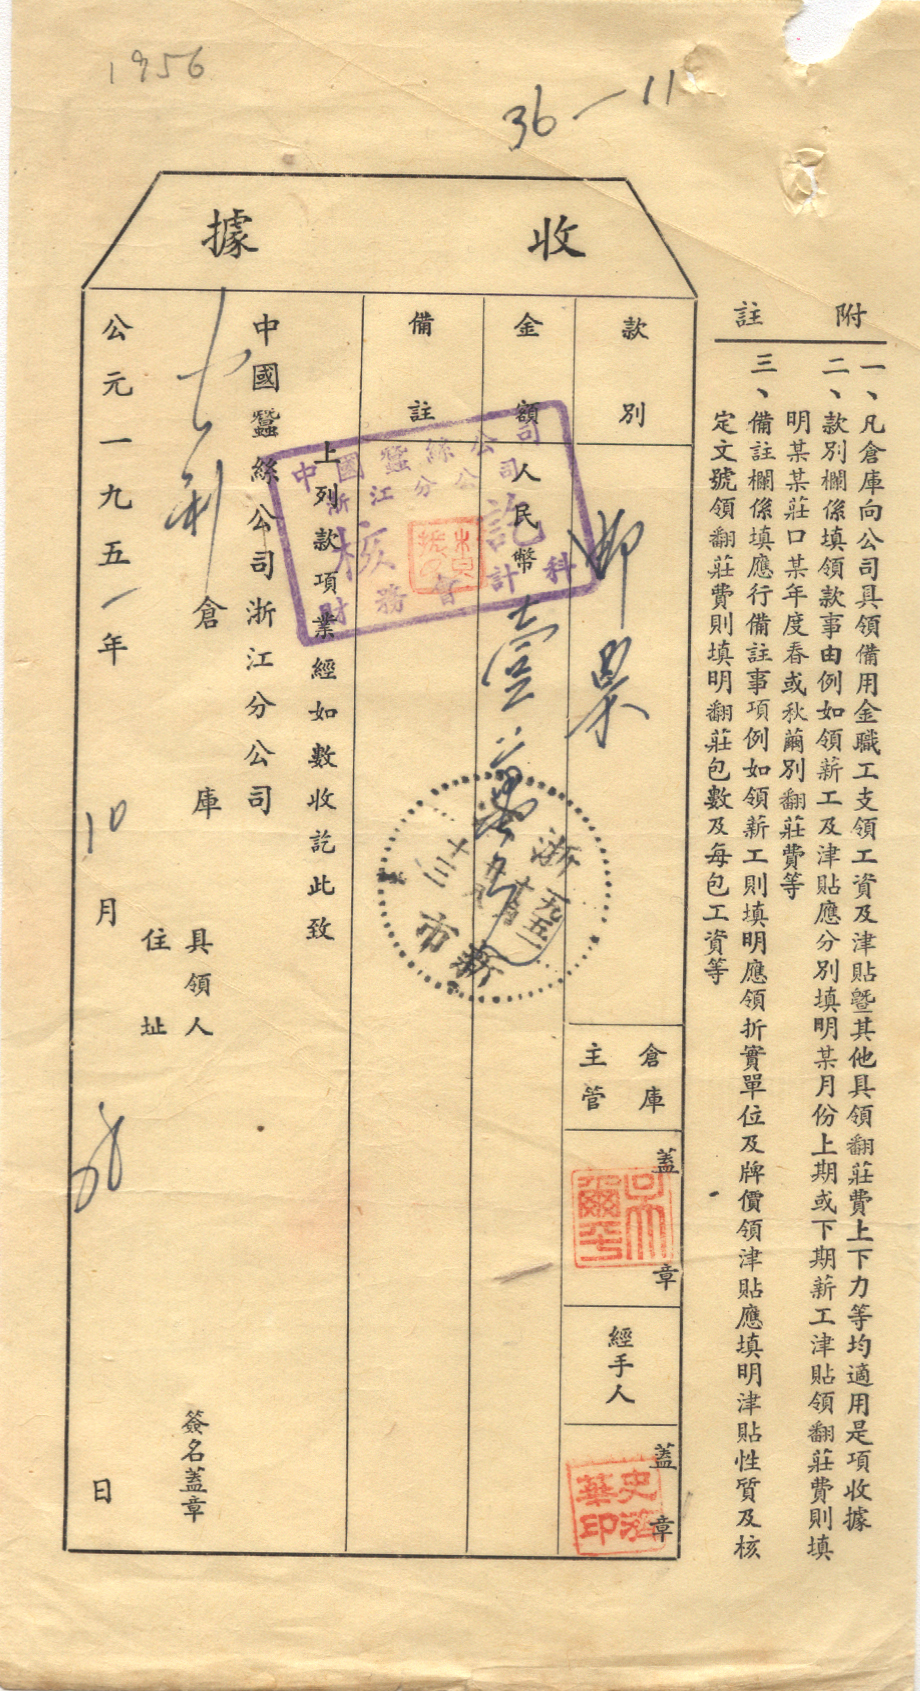 1956
36—11
收據
附註
一、凡倉庫向公司具領備用金職工支領工資及津貼暨其他具領翻莊費上下力等均適用是項收據
二、款別欄係填領款事由例如領薪工及津貼應分別填明某月份上期或下期薪工津貼領翻莊費則填
明某某莊口某年度春或秋繭別翻莊費等
三、備註欄係填應行備註事項例如領薪工則填明應領折實單位及牌價領津貼應填明津貼性質及核
定文號領翻莊費則填明翻莊包數及每包工資等
款別
倉庫主管
蓋章
經手人
蓋章
史濟華印
金額
人民幣壹
備註
上列款項業經如數收訖此致
中國蠶絲公司浙江分公司
倉庫
具領人
住址
簽名蓋章
公元一九五一年10月28日
中國蠶絲公司
浙江分公司
核訖
財務會計科
浙
一九五一
新市
十三